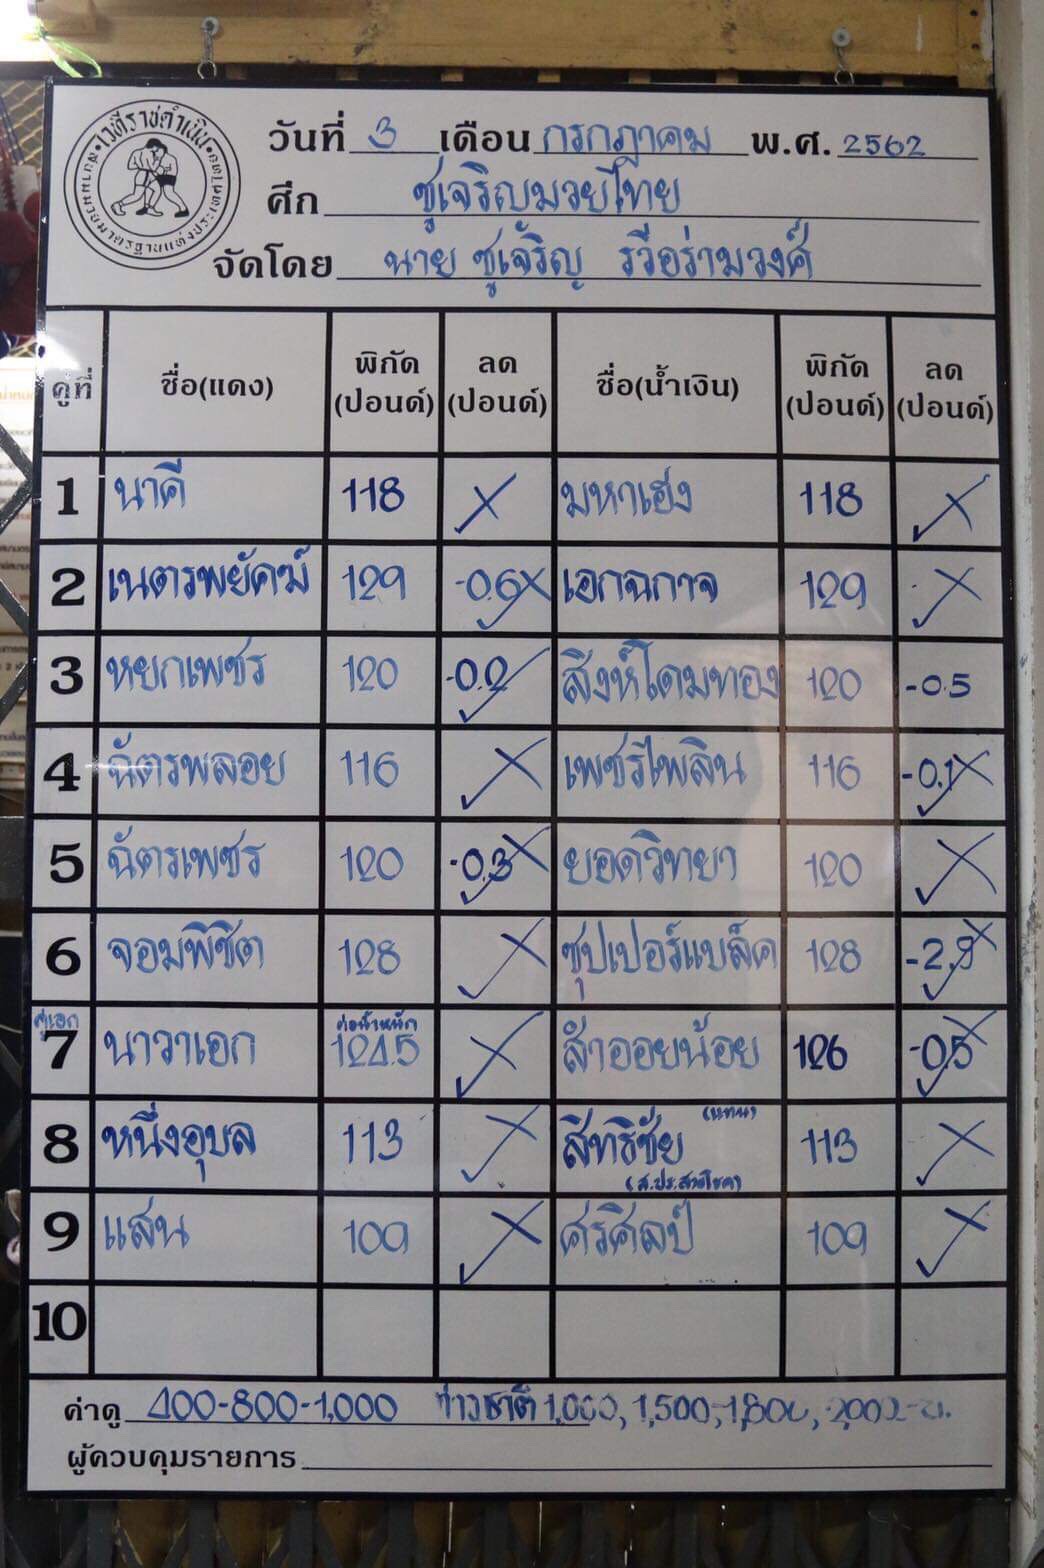 เวทีราชดำเนิน
วันที่ 3 เดือน กรกฎาคม พ.ศ. 2562
ศึก ชูเจริญมวยไทย
จัดโดย นาย ชูเจริญ รวีอร่ามวงศ์
คู่ที่ ชื่อ(แดง) พิกัด (ปอนด์) ลด (ปอนด์) ชื่อ(น้ำเงิน) พิกัด (ปอนด์) ลด (ปอนด์)
1 นาคี 118 มหาเฮง 118
2 เนตรพยัคฆ์ 129 -0.6 เอกฉกาจ 129
3 หยกเพชร 120 -0.2 สิงห์โดมทอง 120 -0.5
4 ฉัตรพลอย 116 เพชรไพลิน 116 -0.1
5 ฉัตรเพชร 120 -0.3 ยอดวิทยา 120
6 จอมพิชิต 128 ซุปเปอร์แบล็ค 128 -2.9
คู่เอก 7 นาวาเอก ต่อน้ำหนัก 124.5 ลำออยน้อย 126 -0.5
8 หนึ่งอุบล 113 สิทธิชัย (แทน) (ส.ปร.สายโชค) 113
9 แสน 109 ศรศิลป์ 109
10
ค่าดู 400-800-1,000 ชาวชาติ 1,000, 1,500, 1,800, 2,000-บ.
ผู้ควบคุมรายการ